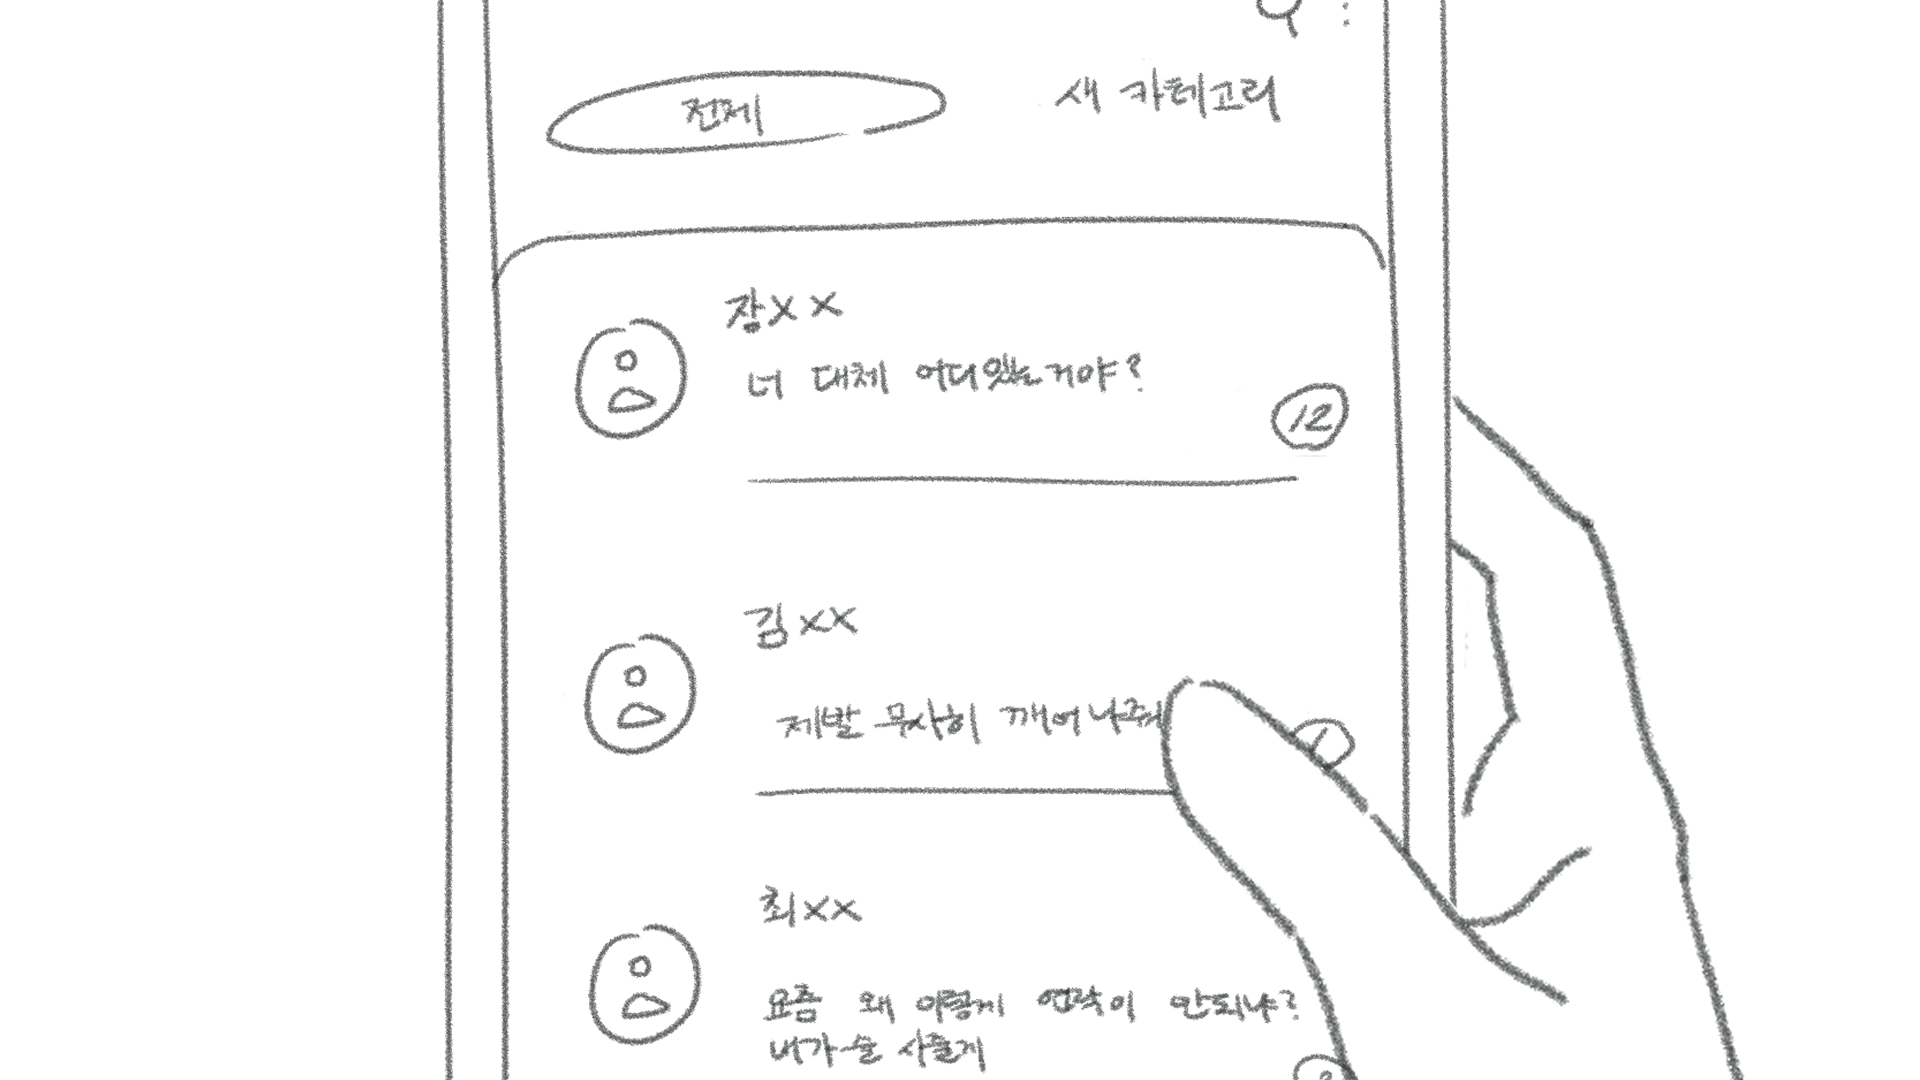 전체
새 카테고리
장××
너 대체 어디있는거야?
12
김××
제발 무사히 깨어나줘
1
최××
요즘 왜 이렇게 연락이 안되냐?
내가 술 사줄게